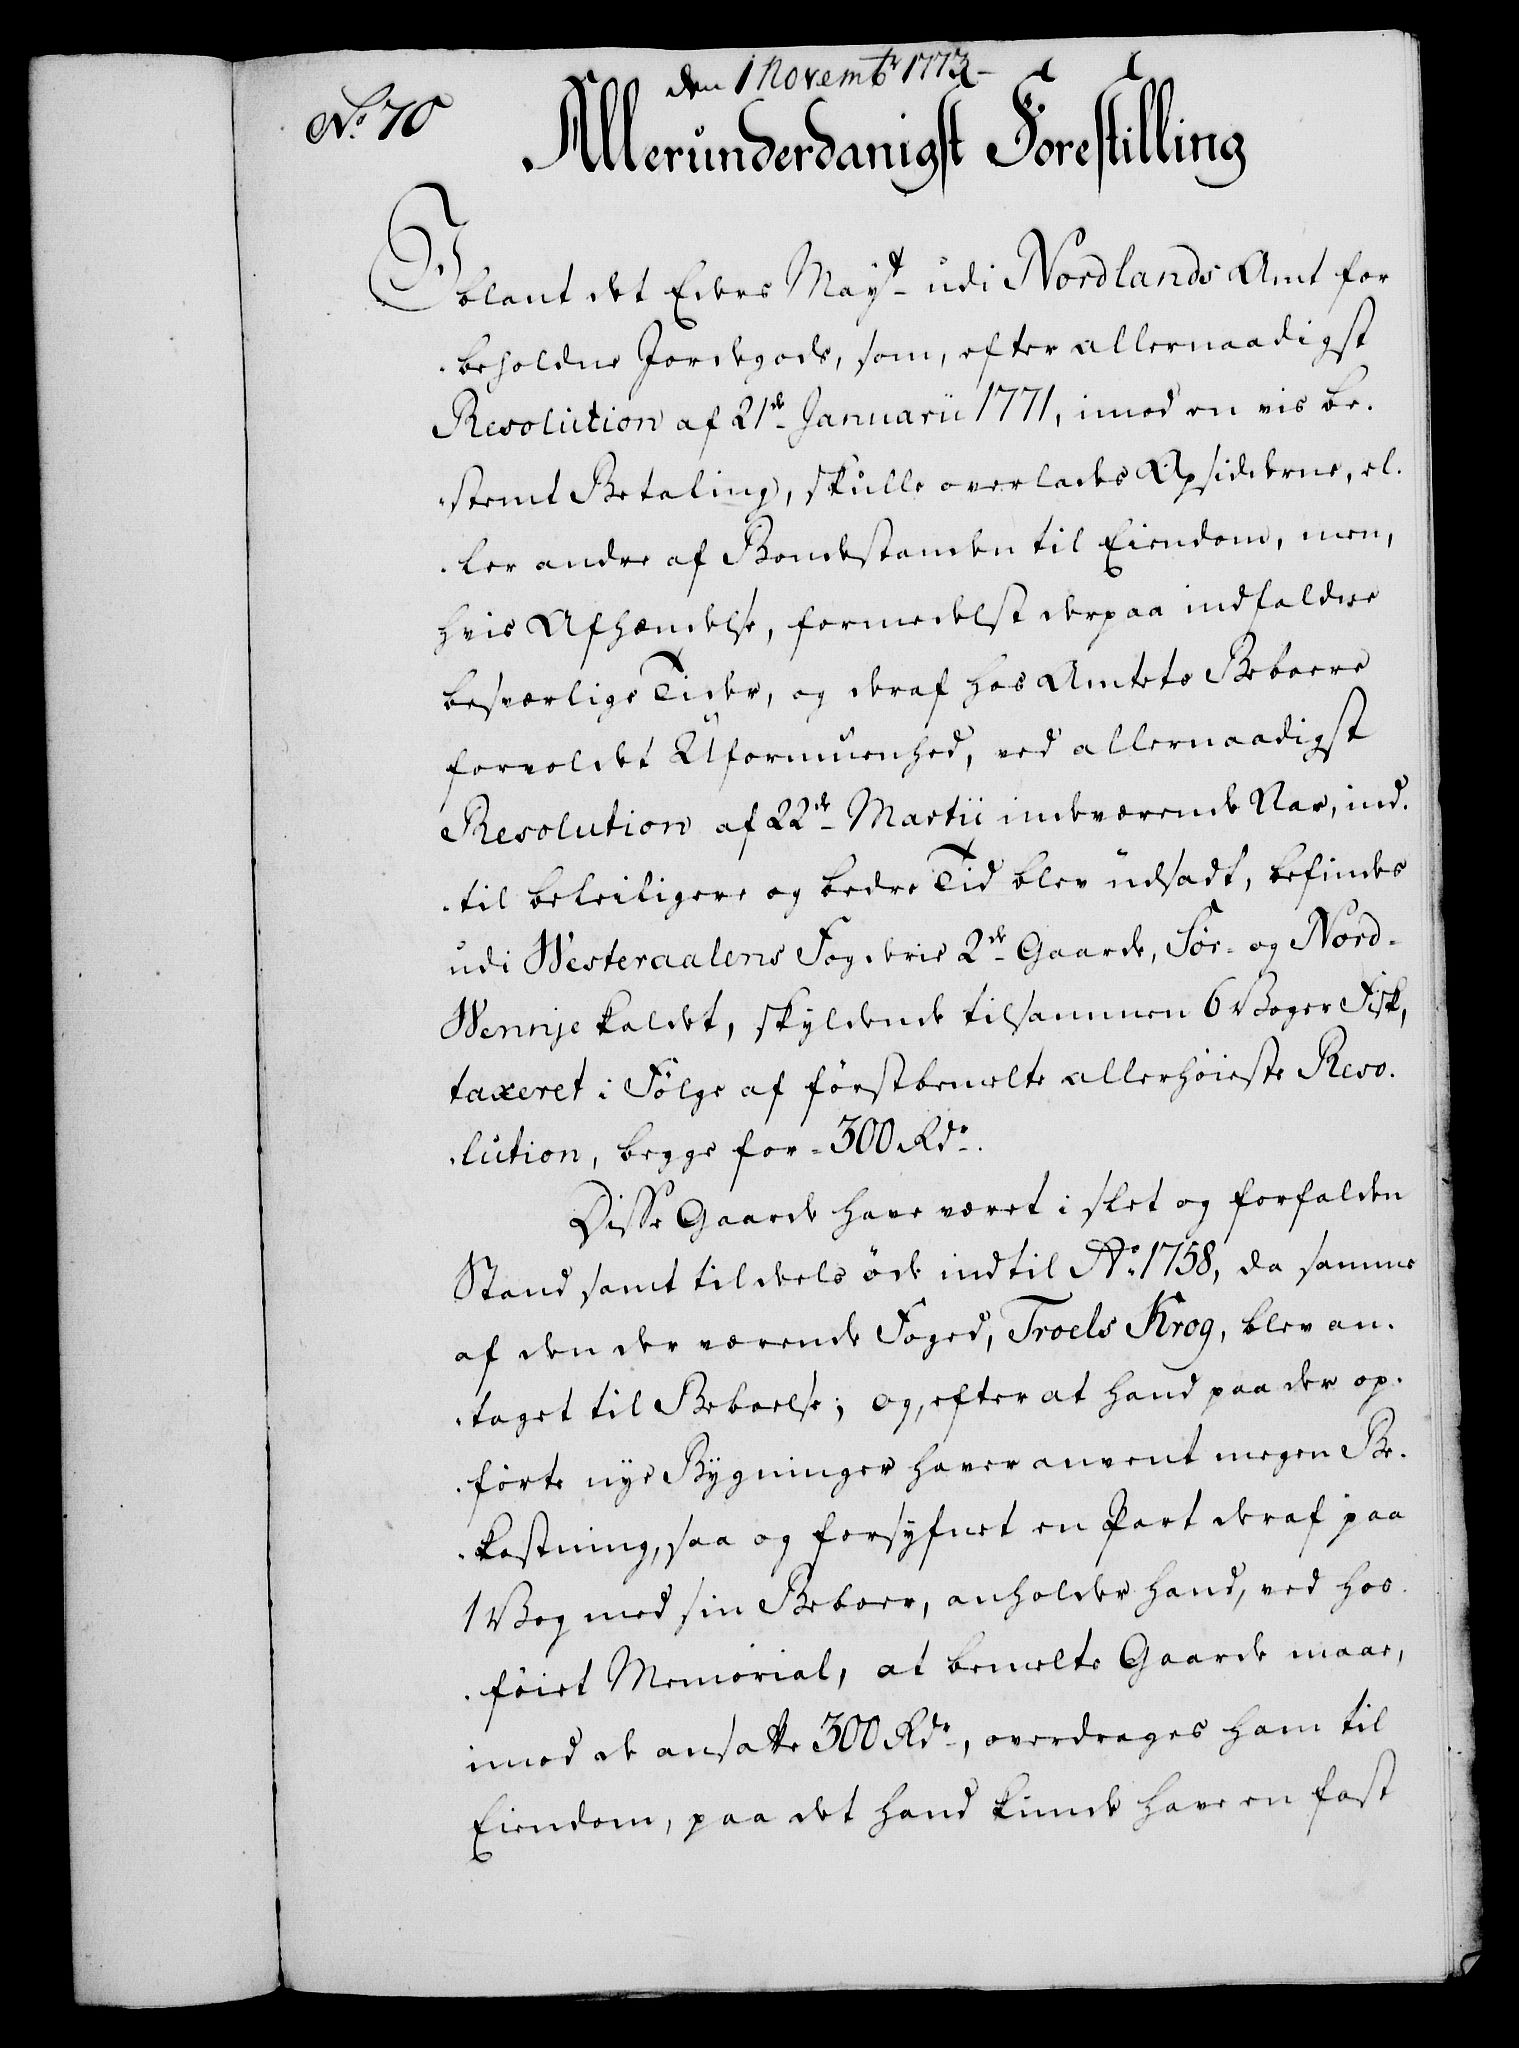 den 1 Novembr 1773
No 70
Allerunderdanigst Forestilling
Iblant det Eders Mayt udi Nordlands Amt for
beholdne Jordegods, som, efter allernaadigst
Resolution af 21de Januarii 1771, imod en vis be-
stemt Betaling, skulle overlades Opsidderne, el-
ler andre af Bondestanden til Eiendom, men,
hvis Afhændelse, formedelst derpaa indfaldne
besværlige Tider, og deraf hos Amtets Beboere
forvoldet Uformuenhed, ved allernaadigst
Resolution af 22de Martii indeværende Aar, ind-
til beleiligere og bedre Tid blev udsadt, befindes
udi Westeraalens Fogderie 2de Gaarde, Sør- og Nord-
Wennje kaldet, skyldende tilsammen 6 Voger Fisk,
taxeret i Følge af førstbemelte allerhøieste Reso-
lution, begge for 300 Rdr.
Disse Gaarde have været i slet og forfalden
Stand samt til deels øde indtil Ao 1758, da samme
af den der værende Foged, Troels Krog, blev an-
taget til Beboelse; og, efter at hand paa der op-
førte nye Bygninger haver anvent megen Be-
kostning, saa og forsyfnet en Part deraf paa
1 Vog med sin Beboer, anholder hand, ved hos-
føiet Memorial, at bemelte Gaarde maae,
imod de ansatte 300 Rdr, overdrages ham til
Eiendom, paa det hand kunde have en fast